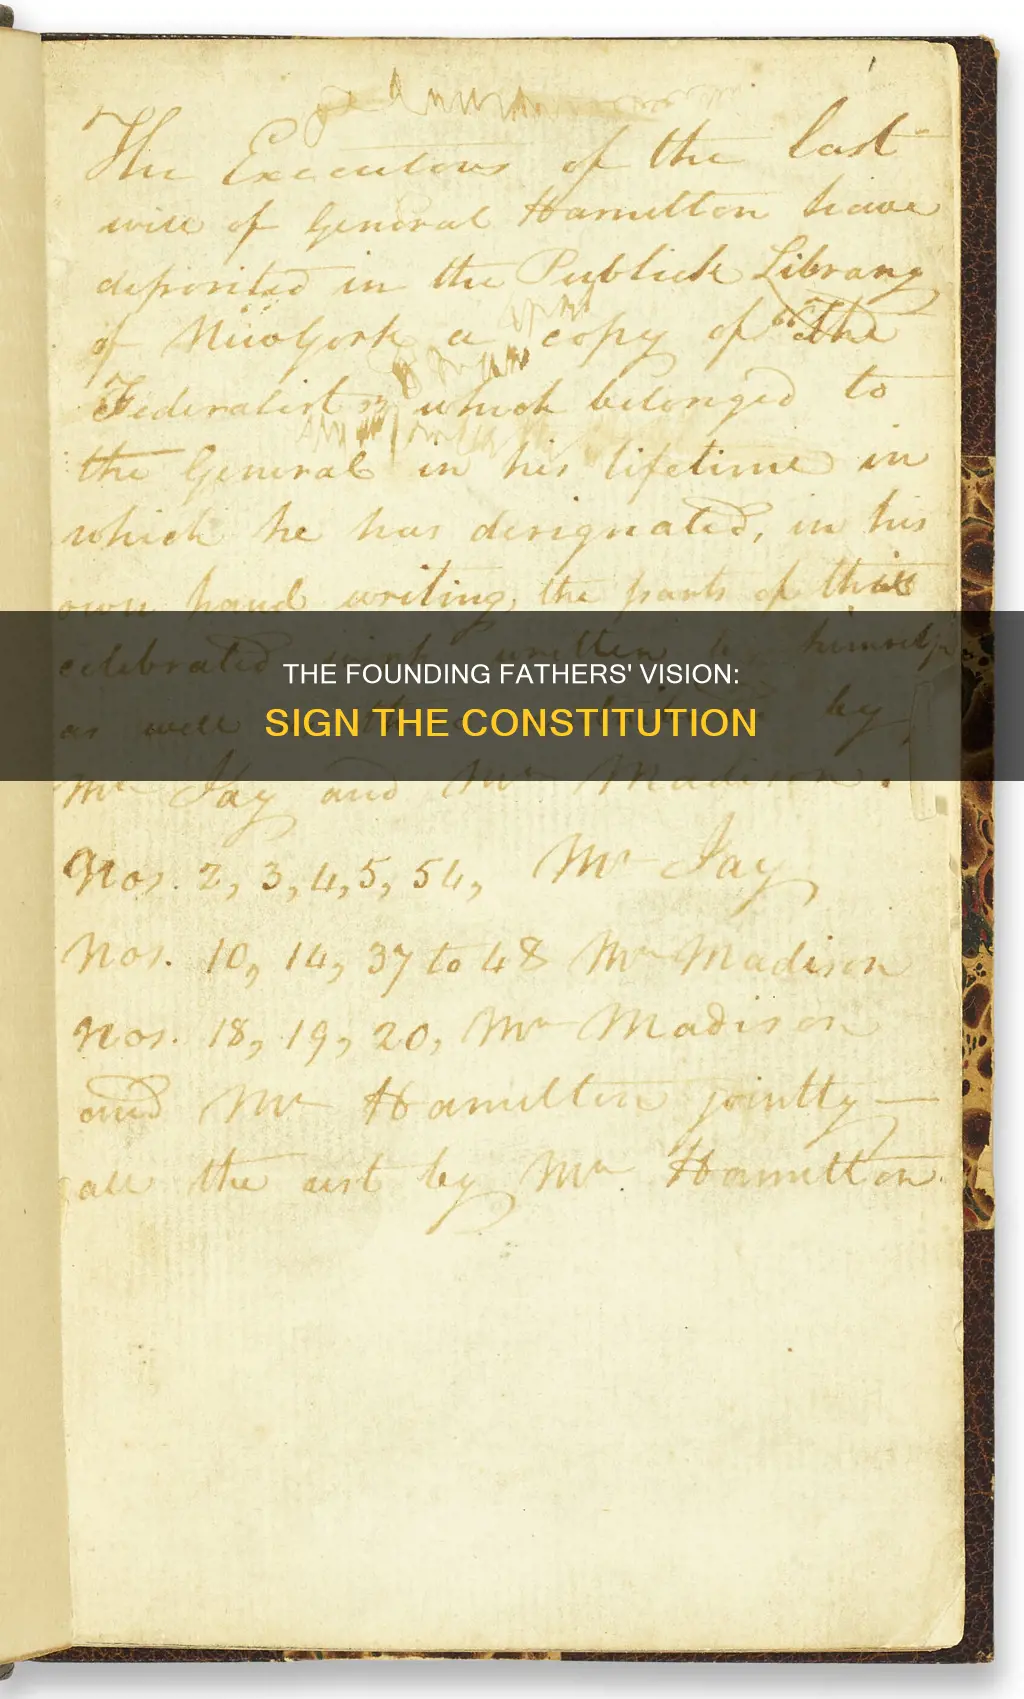 The Executors of the last
will of General Hamilton have
deposited in the Publick Library
of New York a copy of "The
Federalist" which belonged to
the General in his lifetime in
which he has designated, in his
own hand writing, the parts of that
celebrated work written by himself,
THE FOUNDING FATHERS' VISION:
SIGN THE CONSTITUTION
as well by
Mr Jay and Mr Madison.
Nos. 2, 3, 4, 5, 54, Mr Jay
Nos. 10, 14, 37 to 48 Mr Madison
Nos. 18, 19, 20, Mr Madison
and Mr Hamilton jointly —
all the rest by Mr Hamilton.